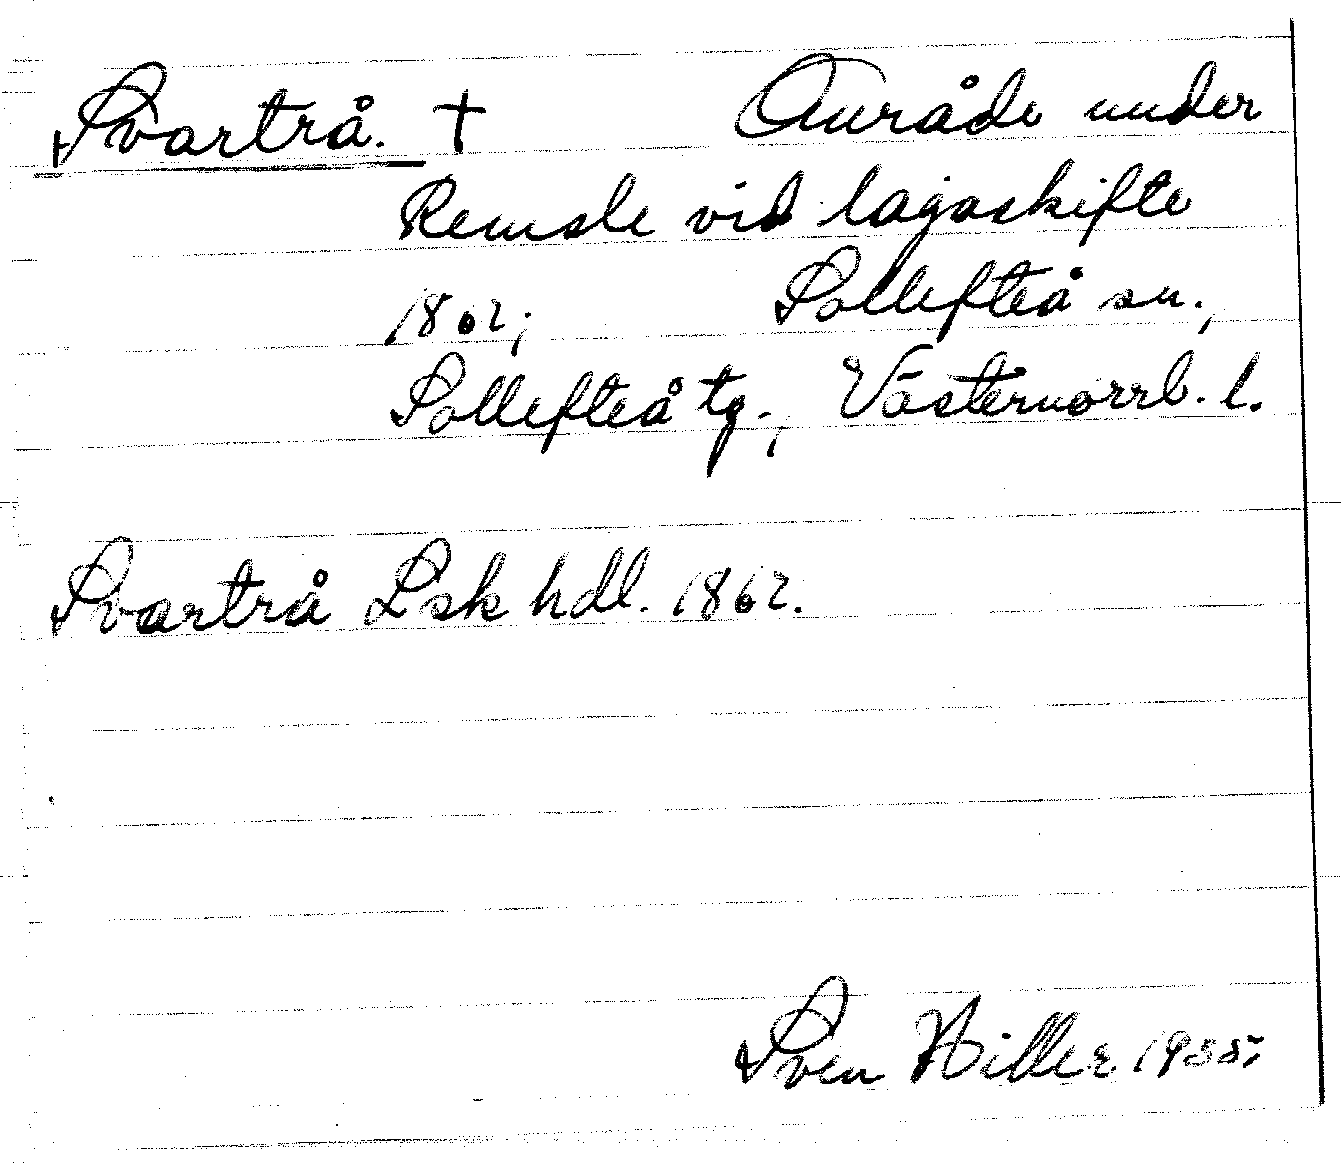 Svartrå. † Område under
Remsle vid lagaskifte
1862; Sollefteå sn.,
Sollefteå tg., Västernorrl. l.
Svartrå Lsk hdl. 1862.
Sven Hiller 1935.